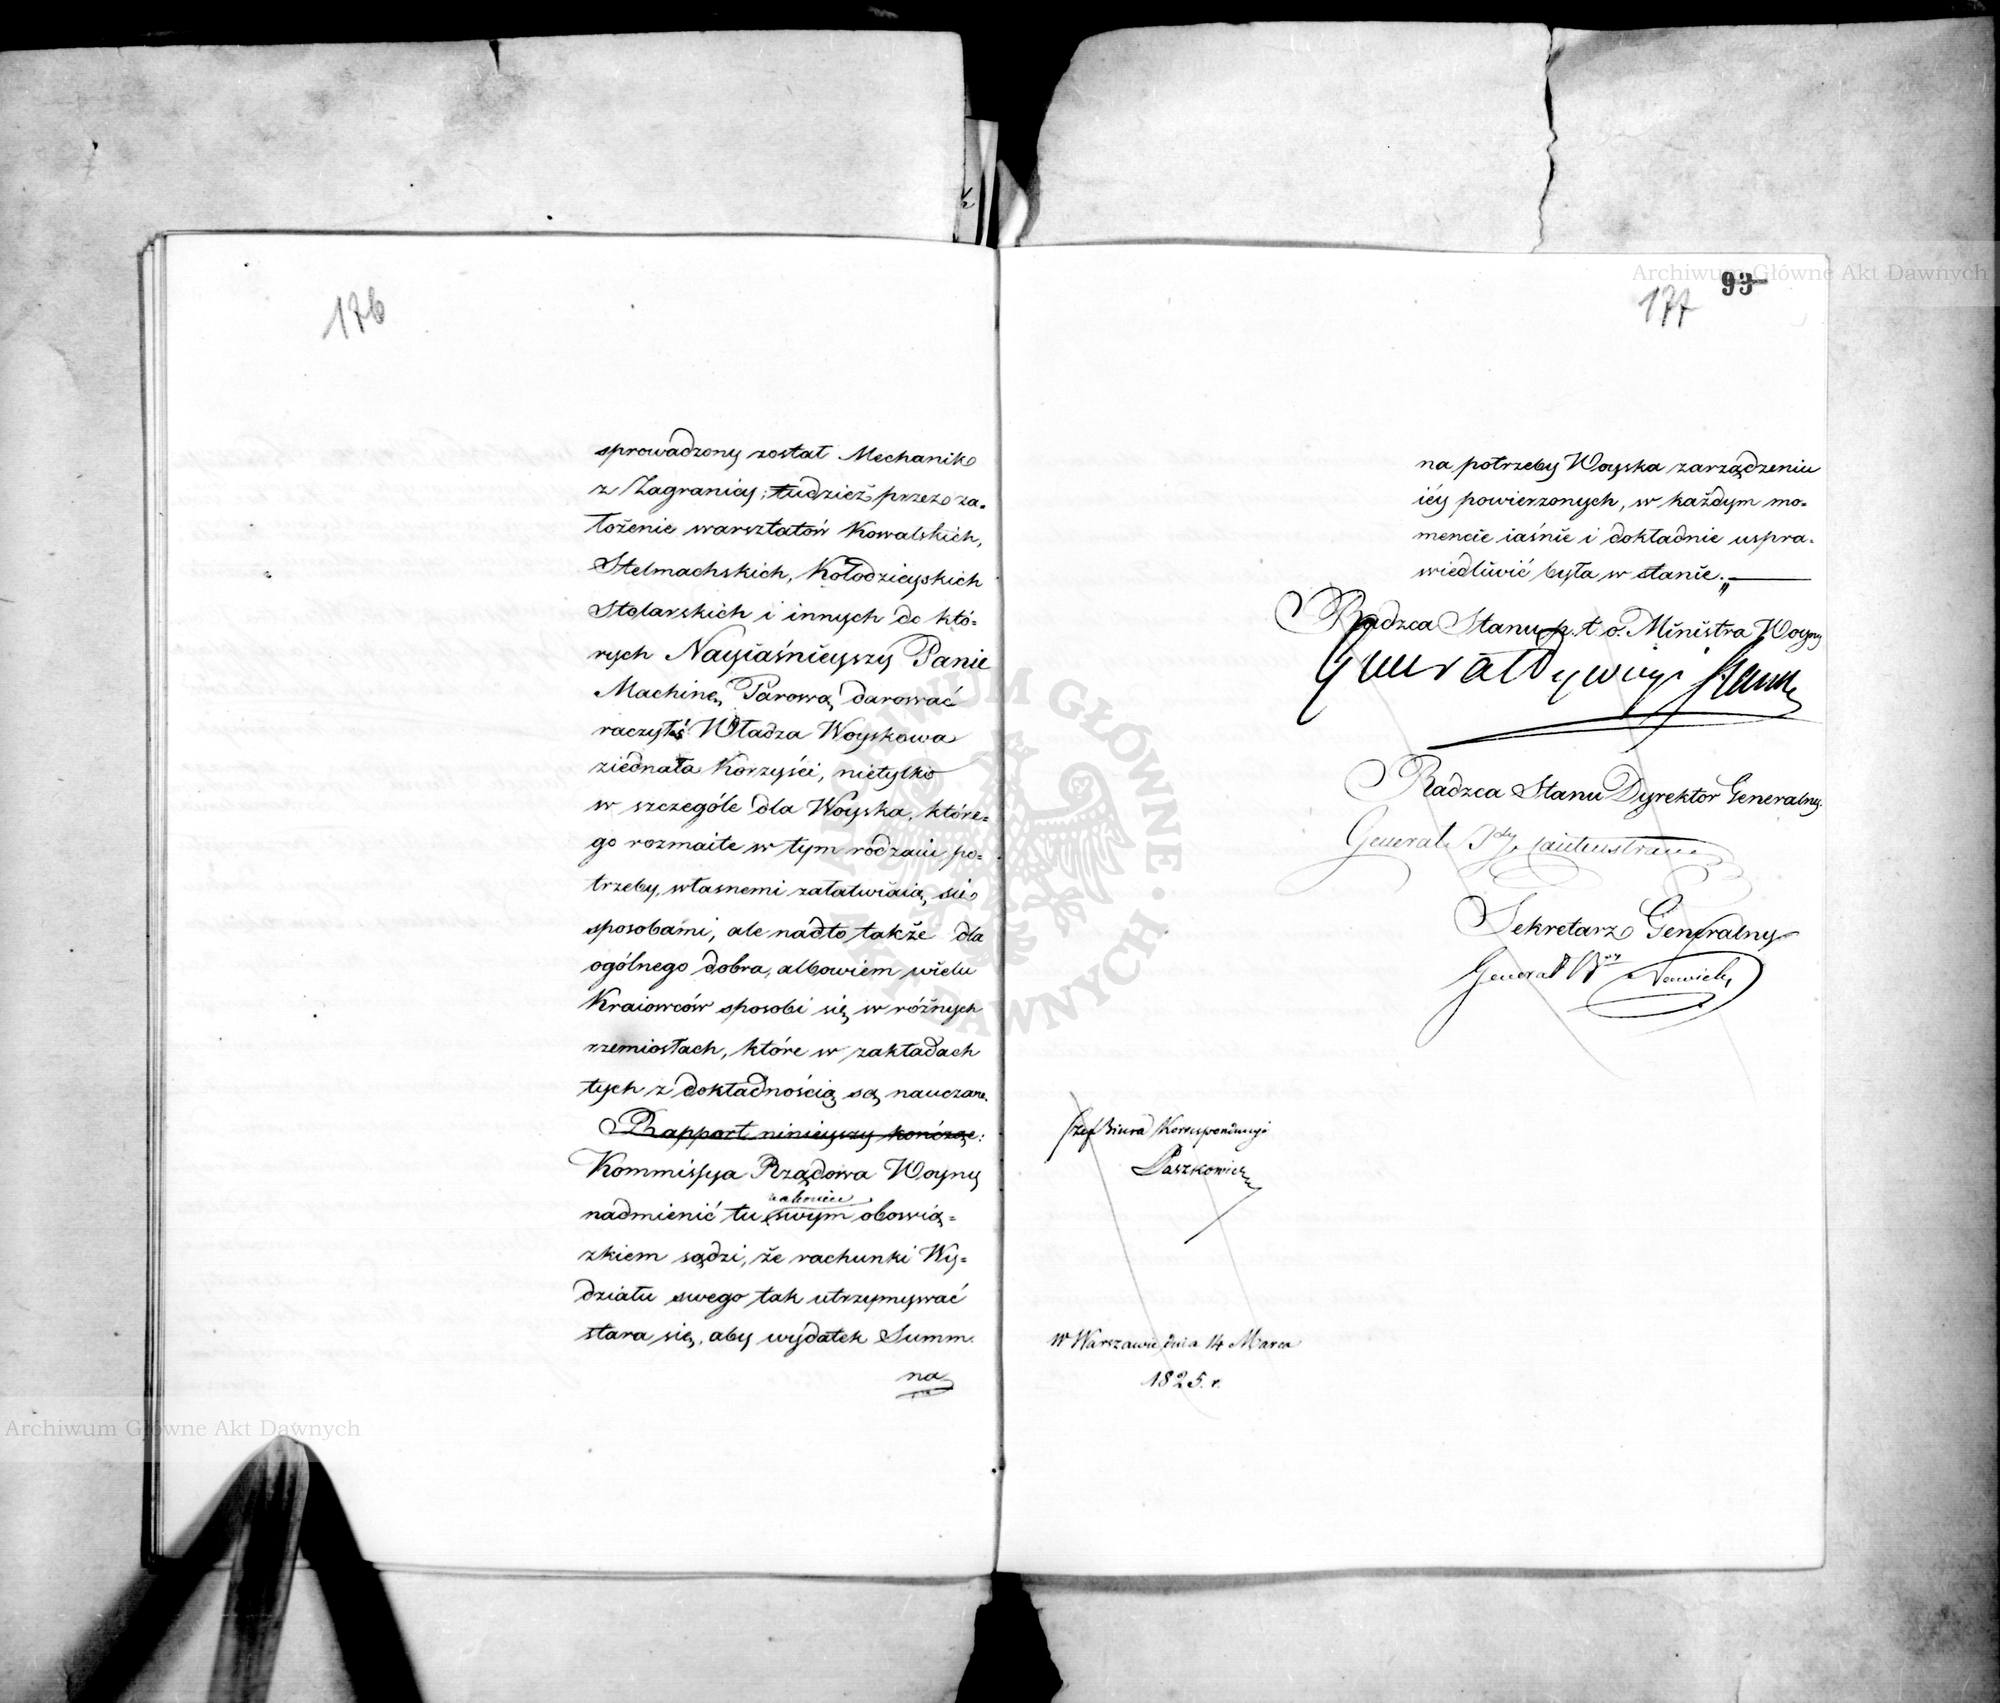 176
sprowadzony został Mechanik
z Zagranicy; tudzież przez za=
łożenie warsztatów Kowalskich,
Stelmachskich, Kołodzieyskich
Stolarskich i innych do któ=
rych Nayiaśnieyszy Panie
Machinę Parową darować
raczyłeś Władza Woyskowa
ziednała Korzyści, nietylko
w szczególe dla Woyska, które=
go rozmaite w tym rodzaiu po=
trzeby, własnemi załatwiaią się
sposobami, ale nadto także dla
ogólnego dobra, albowiem wielu
Kraiowców sposobi się w różnych
rzemiosłach, które w zakładach
tych z dokładnością są nauczane.
Rapport ninieyszy kończąc:
Kommissya Rządowa Woyny
nakoniec
nadmienić tu swym obowią=
zkiem sądzi, że rachunki Wy=
działu swego tak utrzymywać
stara się, aby wydatek Summ
na
93
177
na potrzeby Woyska zarządzeniu
iéy powierzonych, w każdym mo=
mencie iaśnie i dokładnie uspra=
wiedliwić była w stanie.
Radzca Stanu p. t. o. Ministra Woyny
Generał Dywizyi Hauke
Radzca Stanu Dyrektor Generalny
Generał Bdy Rautenstrauch
Sekretarz Generalny
Generał Nowicki
Szef Biura Korrespondencyi
Paszkowicz
w Warszawie dnia 14 Marca
1825. r.
Archiwum Główne Akt Dawnych
Archiwum Główne Akt Dawnych
ARCHIWUM GŁÓWNE AKT DAWNYCH